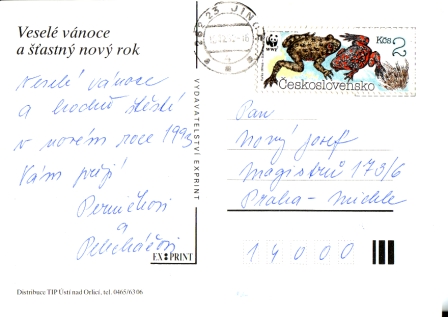 Veselé vánoce
a šťastný nový rok
Veselé vánoce
a hodně štěstí
v novém roce 1993
Vám přejí
a
VYDAVATELSTVÍ EXPRINT
EXPRINT
Distribuce TIP Ústí nad Orlicí, tel. 0465/6306
WWF
Kčs 2
Československo
Pan
Nový Josef
Magistrů 173/6
Praha-Michle
14000